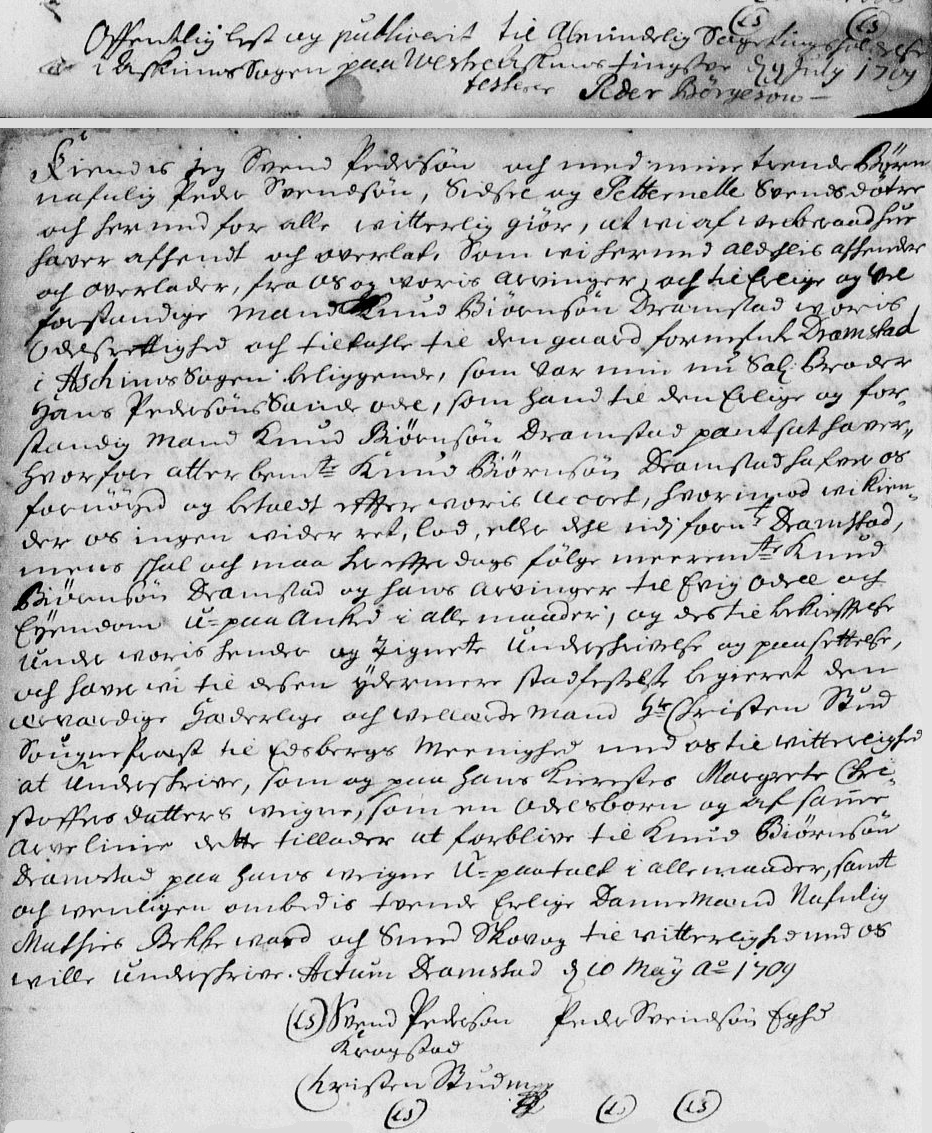 (LS) (LS)
Offentlig lest og publicerit til Almindelig Sageting holdelse
i Askimss Sogen paa Westre Askims tingstue d 9 July 1709
testerer Peder Börgesön
Kiendis jeg Svend Pedersön och med mine trende Börn
nafnlig Peder Svendsön, Sidsel og Petternelle Svends döttre
och hermed for alle witterlig giör, at wi af velberaad hue
haver afhendt och overlat, Som wi hermed aldelis afhender
och overlader, fra os og woris Arvinger, och til Erlige og vel
forstandige Mand Knud Biörnsön Dramstad woris
Odelsrettighed och tiltahle til den gaard fornefnte Dramstad
i Aschims Sogen beliggende, som var min nu Sal. Broder
Hans Pedersöns Sande odel, som hand til den Erlige og for-
standig Mand Knud Biörnsön Dramstad pantsat haver,
Hvorfore atter bemte Knud Biörnsön Dramstad hafver os
fornöyed og betalt effter woris Accort, hvormed wi kien-
der os ingen wider ret, lod, eller dehl udj fornte Dramstad,
mens skal och maa herefter dags fölge meerbemte Knud
Biörnsön Dramstad og hans Arvinger til Evig Odel och
Eyendom U-paa Anked i alle maader; og des til bekreftelse
under woris hender og Zignete Underskrivelse og paasettelse,
och haver wi til desen ydermere stadfestelse begieret den
ærværdige Hæderlige och wellærde Mand Hr Christen Stud
Sougneprest til Edsbergs Meenighed med os til witterlighed
at Underskrive, som og paa hans Kierestes Margrete Chri-
stoffers datters weigne, som en odelsborn og af samme
Arve linie dette tillader at forblive til Knud Biörnsön
Dramstad paa hans weigne U-paatalt i alle maader, samt
och wenligen ombedis tvende Erlige Dannemænd Nafnlig
Mathies Bekkevard och Svend Skovog til witterlighed med os
wille underskrive. Actum Dramstad d 10 May Ao 1709
(LS) Svend Pederson Peder Svendsön
Kragstad
Christen Stud
(LS) (LS) (LS)